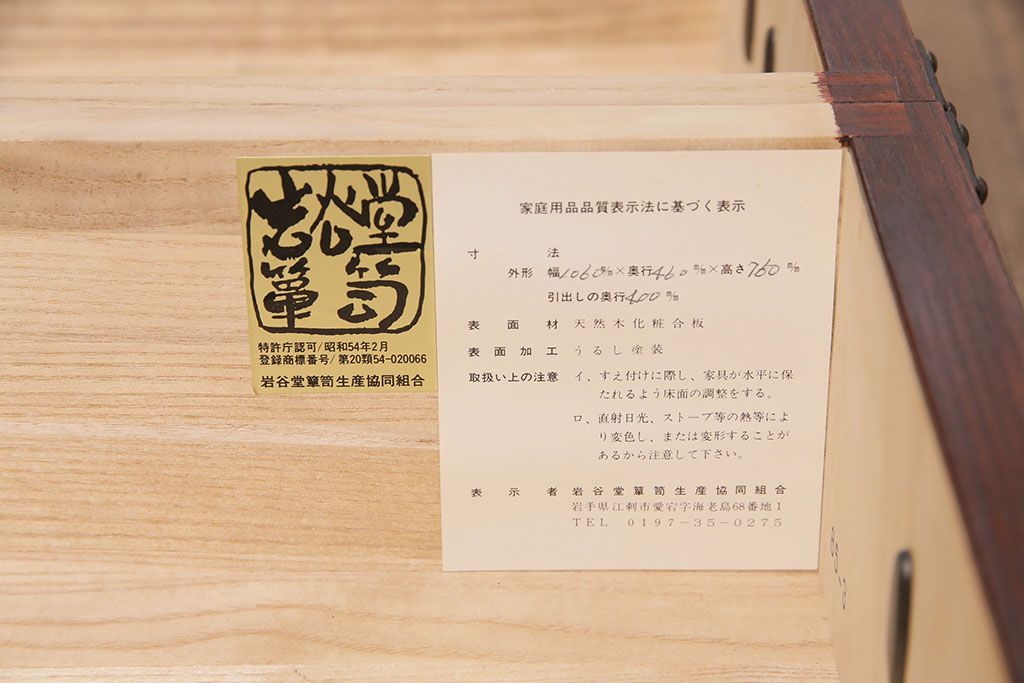 岩谷堂
簞笥
特許庁認可/昭和54年2月
登録商標番号/第20類54-020066
岩谷堂簞笥生産協同組合
家庭用品品質表示法に基づく表示
寸法
外形 幅1060㎜×奥行460㎜×高さ760㎜
引出しの奥行400㎜
表面材 天然木化粧合板
表面加工 うるし塗装
取扱い上の注意 イ、すえ付けに際し、家具が水平に保
たれるよう床面の調整をする。
ロ、直射日光、ストーブ等の熱等によ
り変色し、または変形することが
あるから注意して下さい。
表示者 岩谷堂簞笥生産協同組合
岩手県江刺市愛宕字海老島68番地1
TEL 0197-35-0275